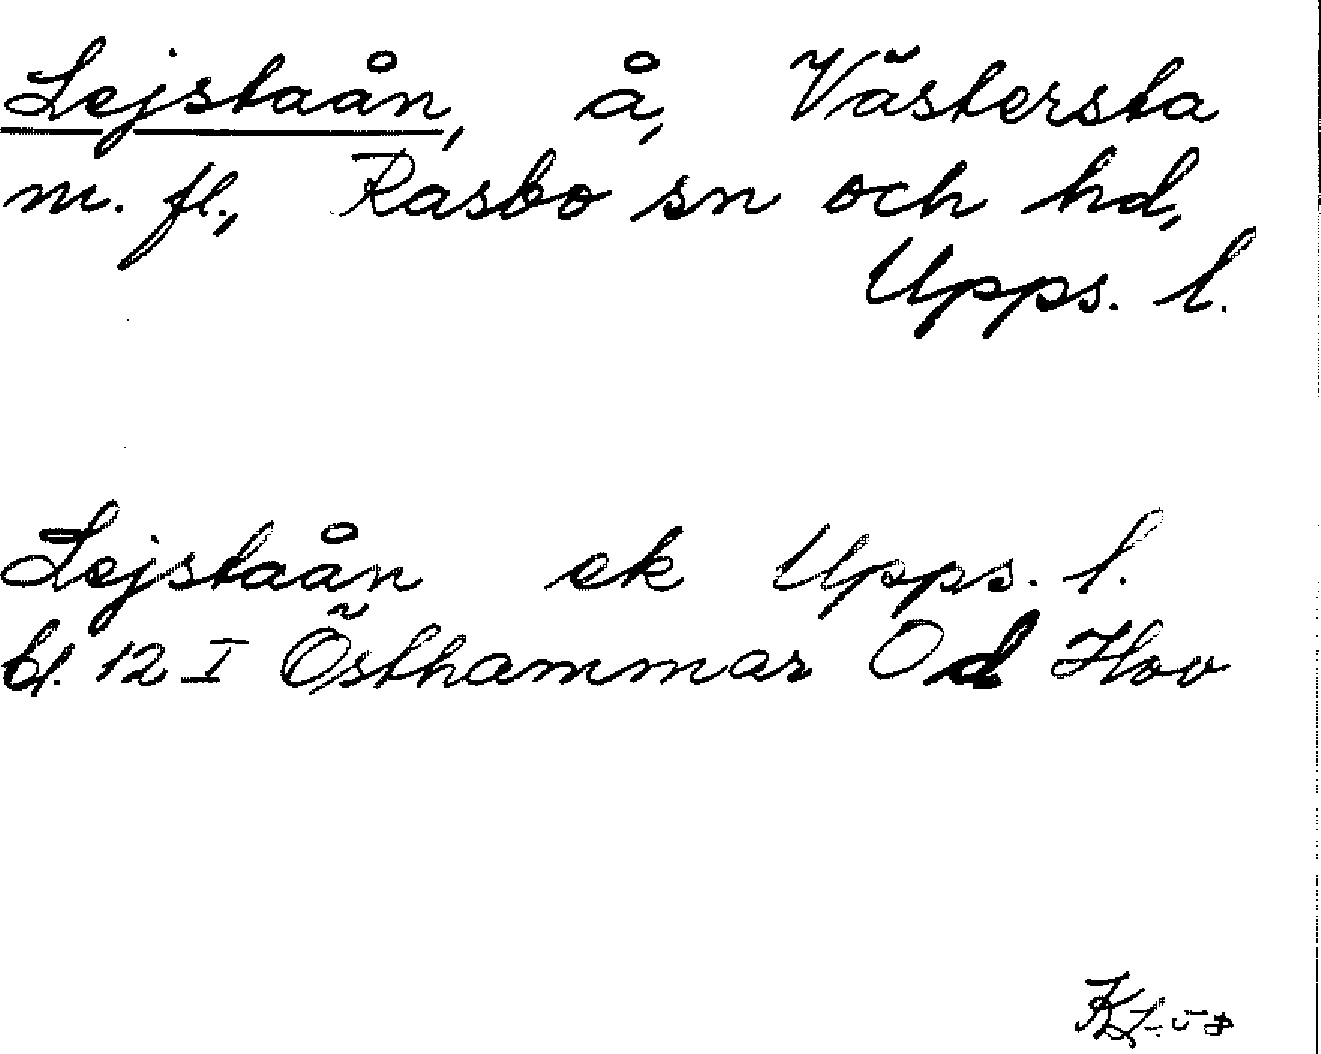 Lejstaån, å, Västersta
m. fl., Rasbo sn och hd,
Upps. l.
Lejstaån ek Upps. l.
bl. 12 I Östhammar Od Hov